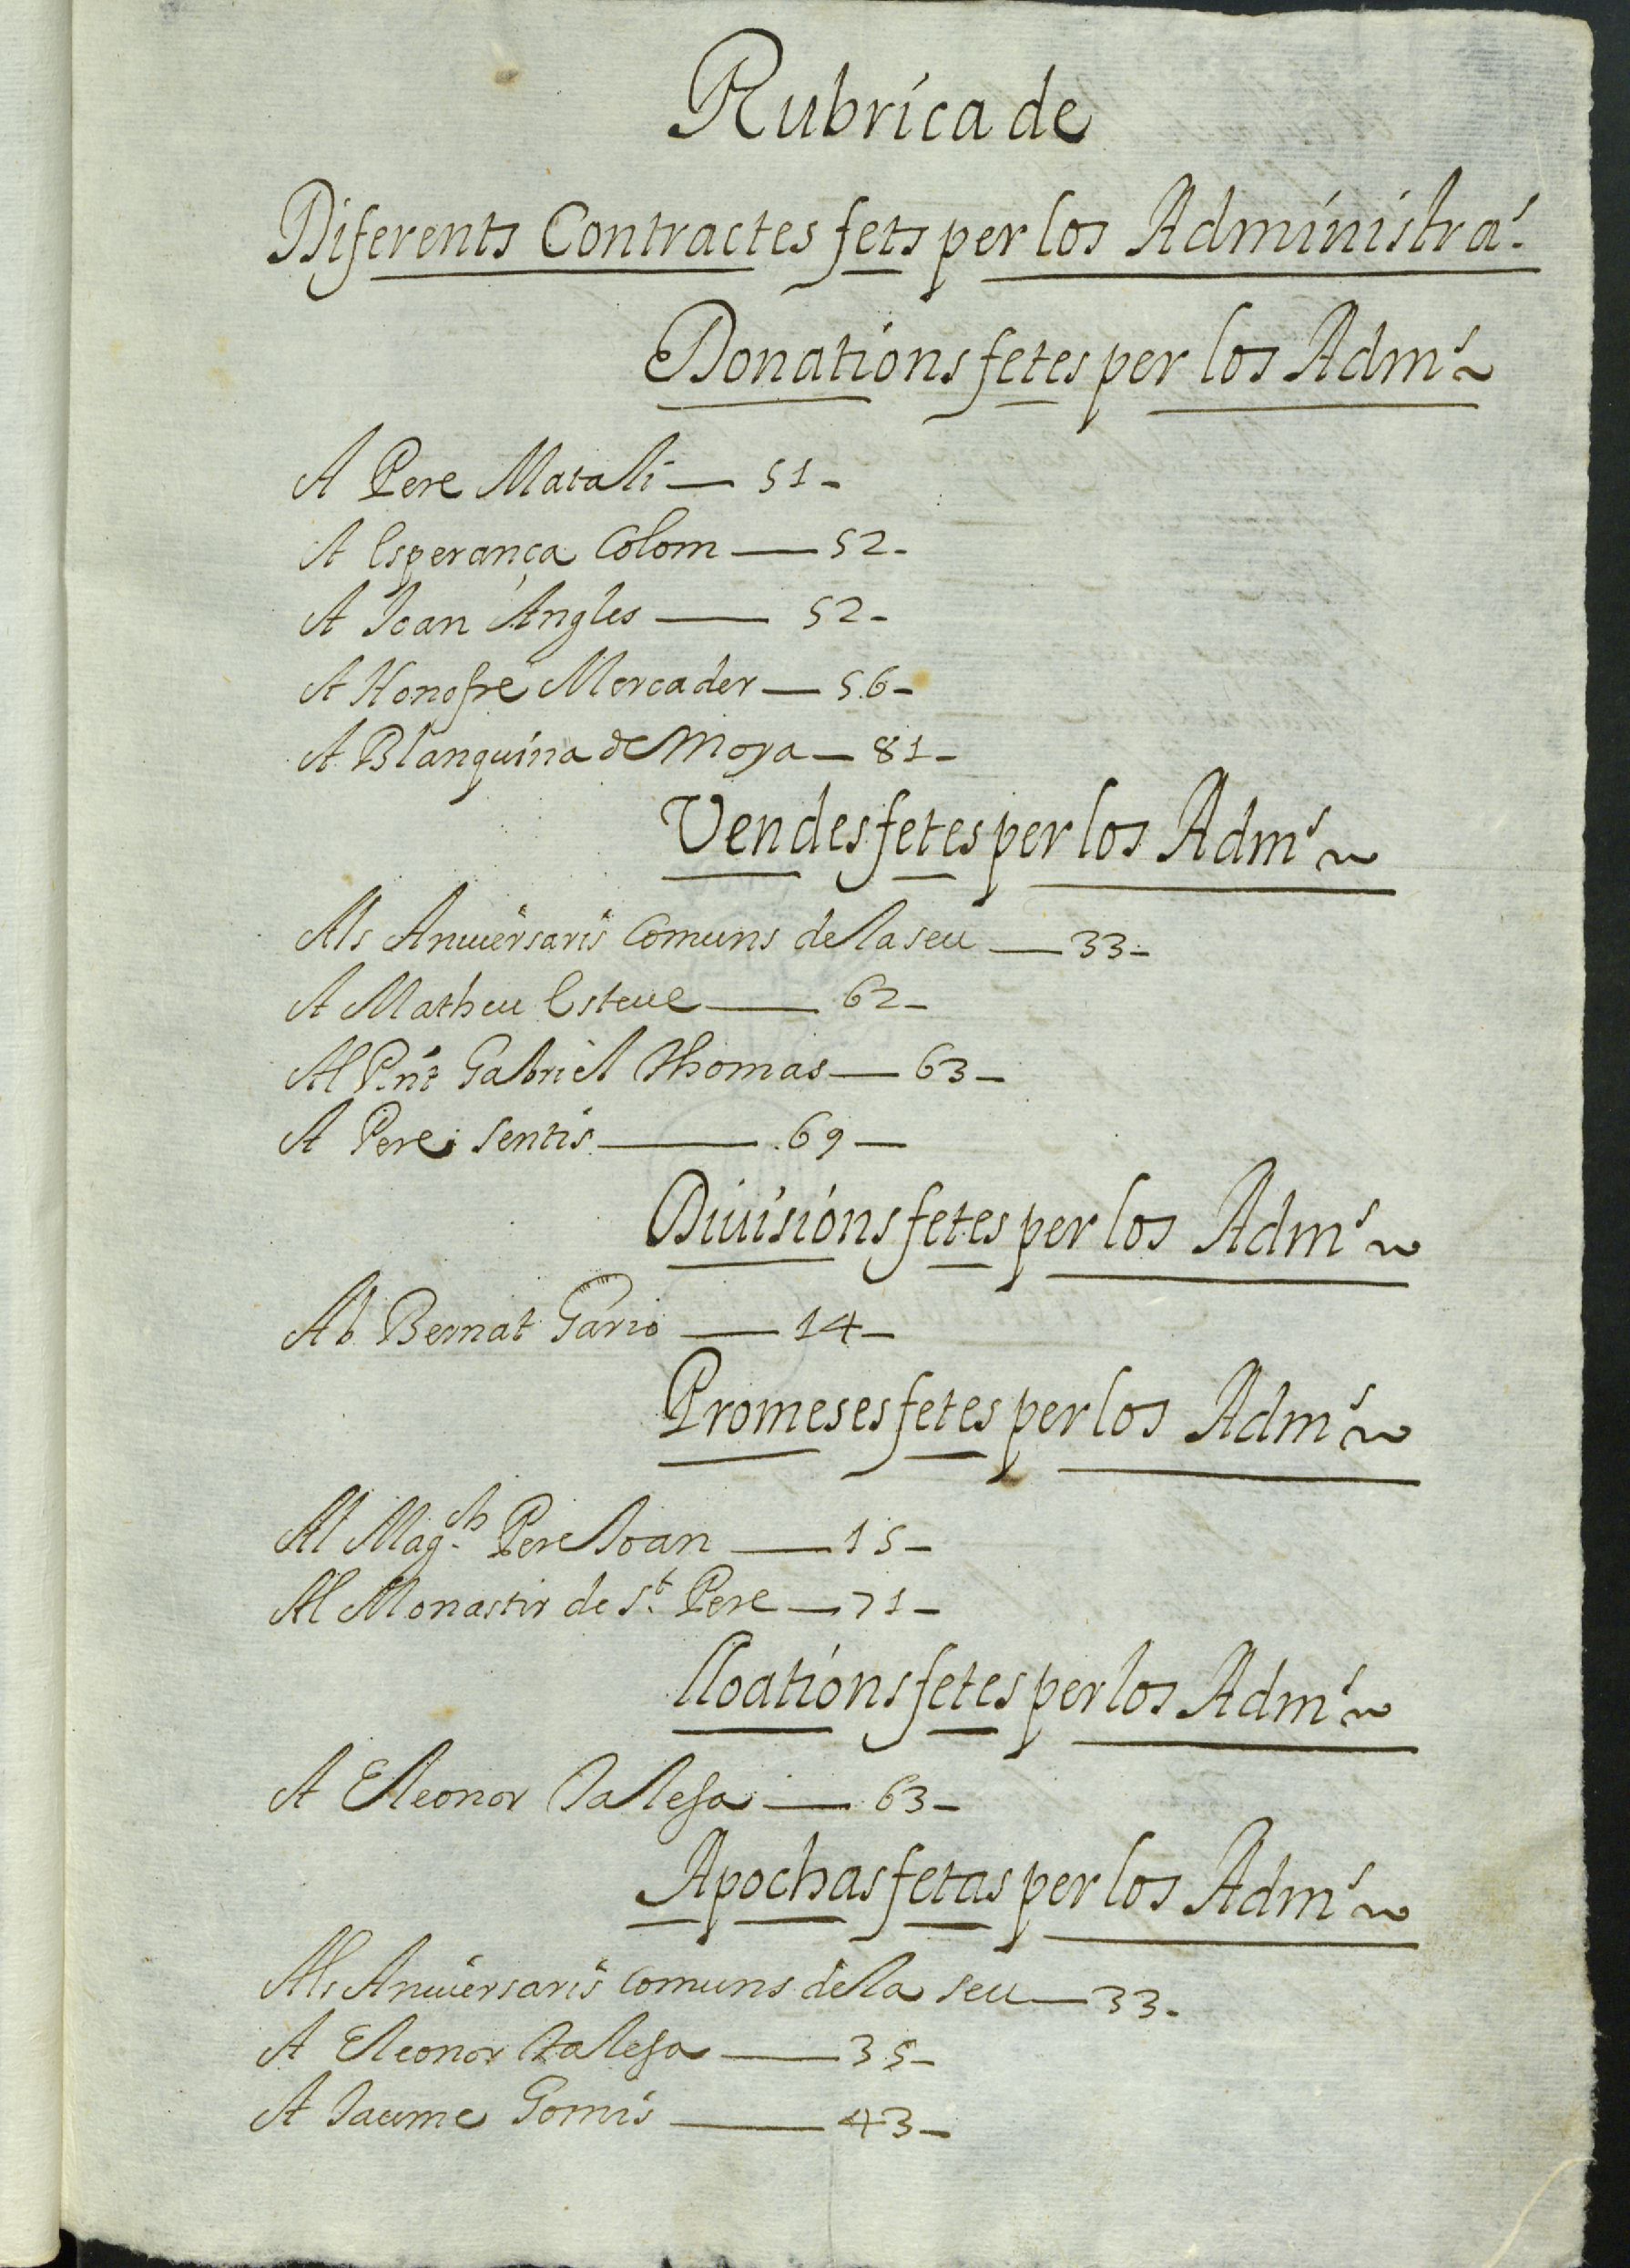 Rubrica de
Diferents Contractes fets per los Administra.ˢ
Donations fetes per los Admˢ
A Pere Matali — 51 -
A Esperança Colom — 52 -
A Joan Angles — 52 -
A Honofre Mercader — 56 -
A Blanquina de Moya — 81 -
Vendes fetes per los Admˢ
Als Aniuersaris Comuns de la seu — 33 -
A Matheu Esteue — 62 -
Al R.nt Gabriel Thomas — 63 -
A Pere Sentis — 69 —
Diuisions fetes per los Admˢ
Ab Bernat Gario — 14 -
Promeses fetes per los Admˢ
Al Mag.ch Pere Joan — 15 -
Al Monastir de S.t Pere — 71 -
lloations fetes per los Admˢ
A Eleonor — 63 -
Apochas fetas per los Admˢ
Als Aniuersaris Comuns de la seu — 33 -
A Eleonor — 35 -
A Jaume Gomis — 43 -